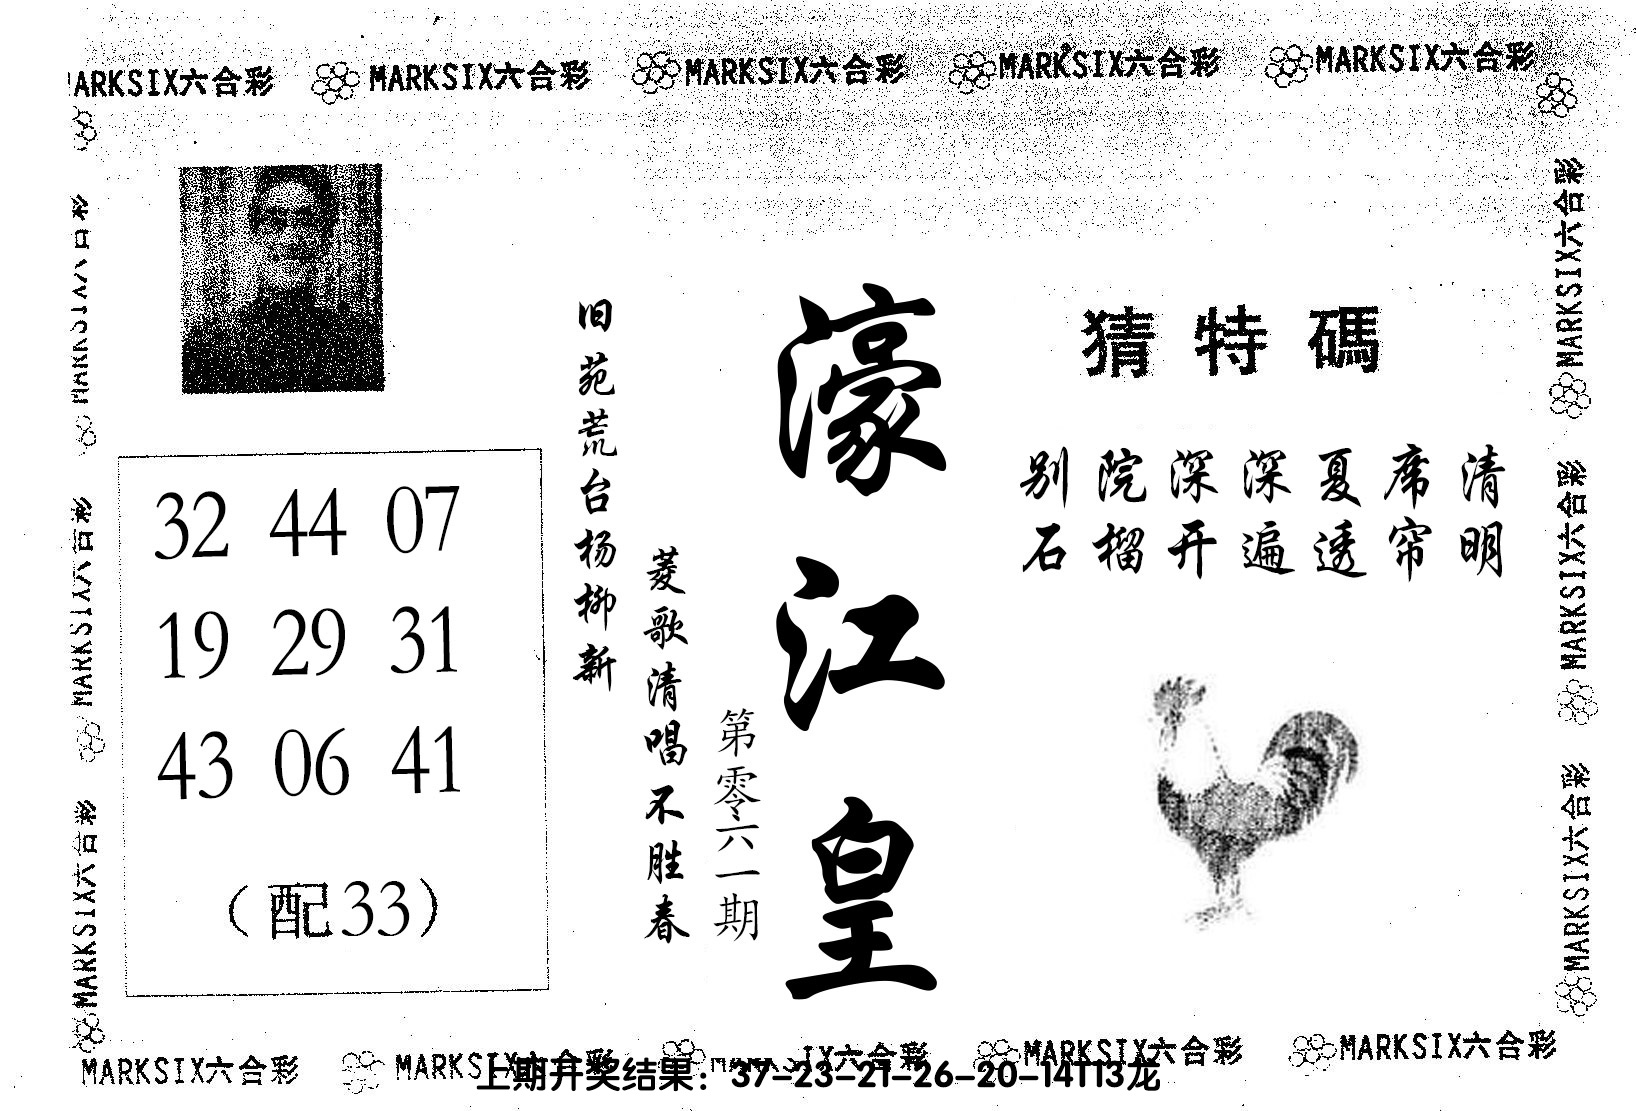 MARKSIX六合彩 MARKSIX六合彩 MARKSIX六合彩 MARKSIX六合彩 MARKSIX六合彩
猜特碼
别院深深夏席清
石榴开遍透帘明
濠江皇
第零六一期
旧苑荒台杨柳新
菱歌清唱不胜春
32 44 07
19 29 31
43 06 41
（配33）
MARKSIX六合彩
MARKSIX六合彩
MARKSIX六合彩
MARKSIX六合彩
MARKSIX六合彩
MARKSIX六合彩
MARKSIX六合彩 MARKSIX六合彩 IX六合彩 MARKSIX六合彩 MARKSIX六合彩
上期开奖结果：37-23-21-26-20-14T13龙